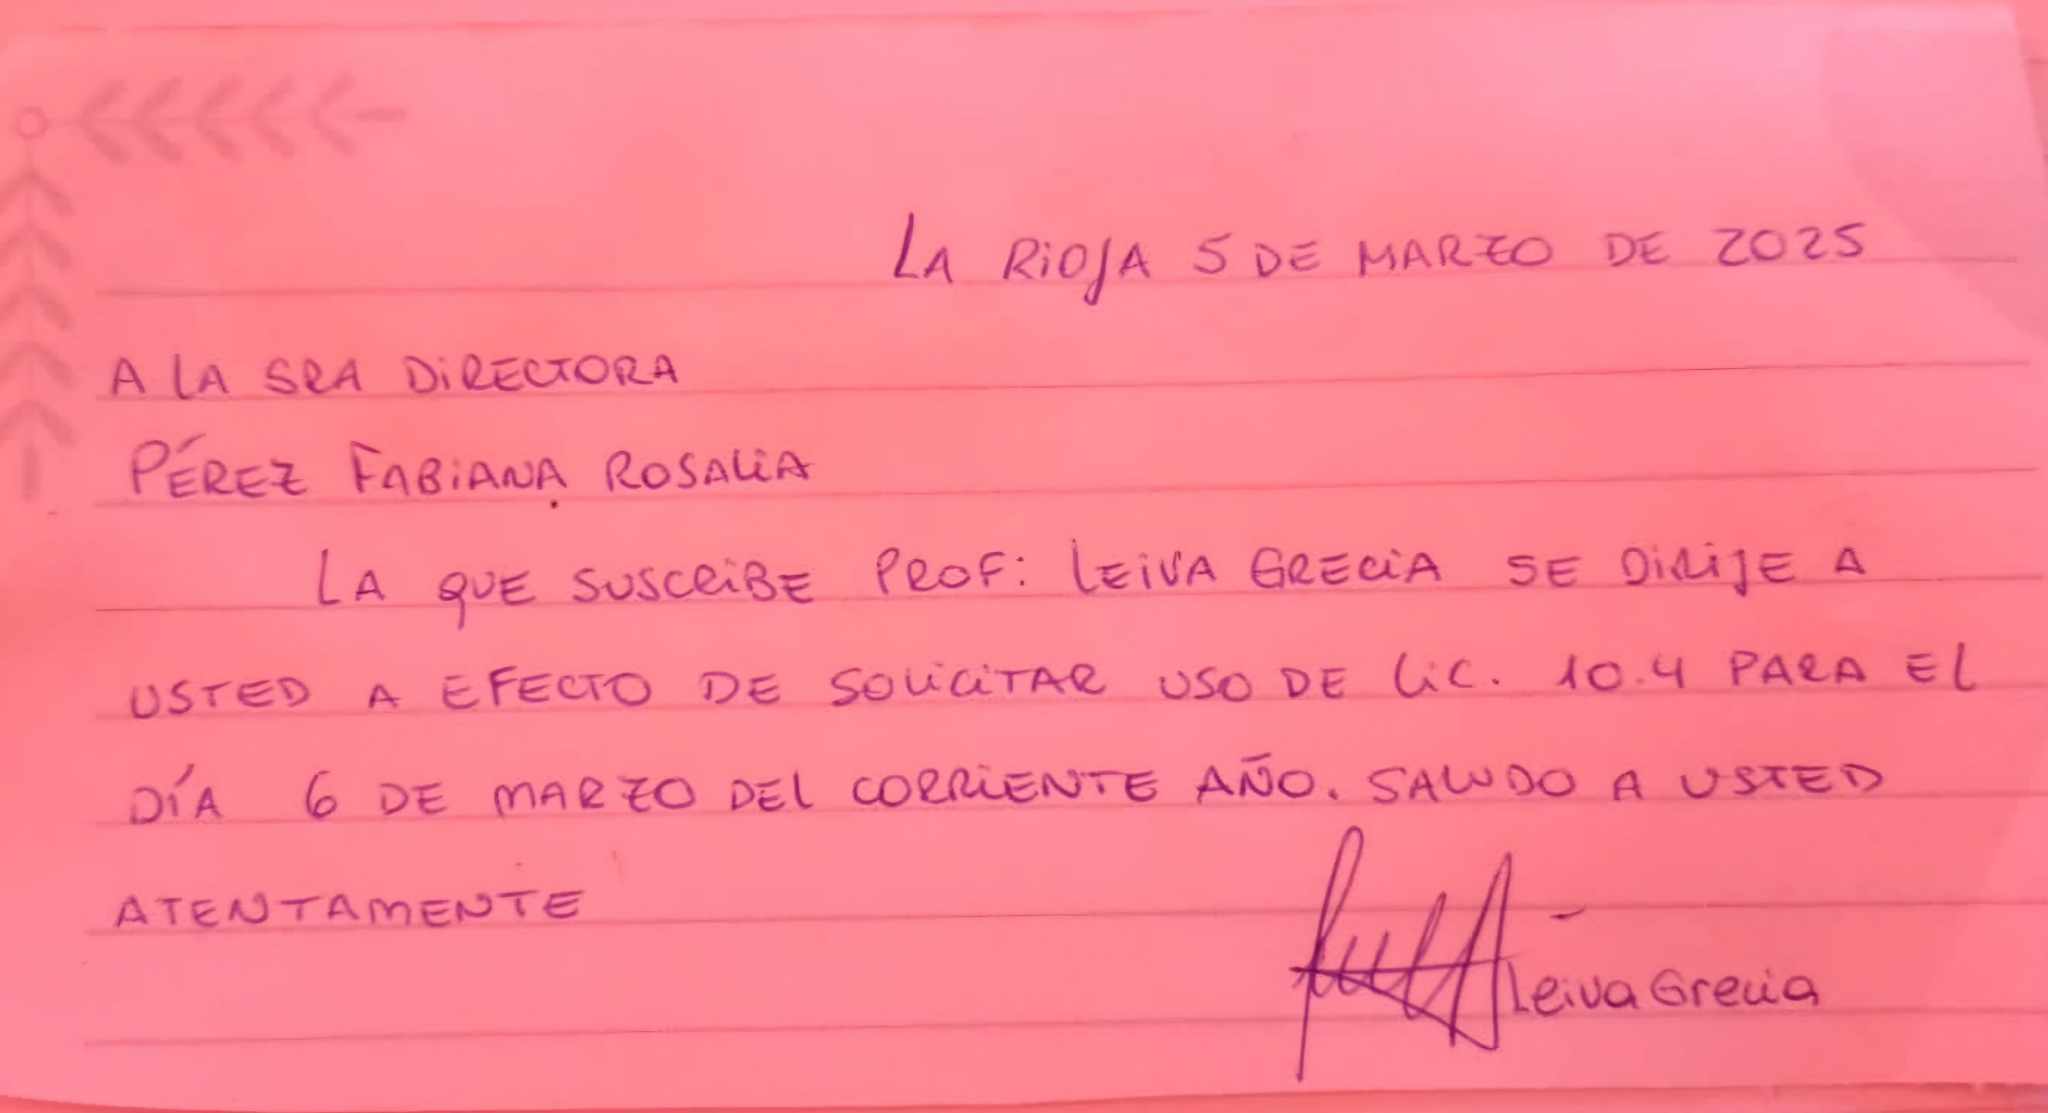 LA RIOJA 5 DE MARZO DE 2025
A LA SRA DIRECTORA
PÉREZ FABIANA ROSALIA
LA QUE SUSCRIBE PROF: LEIVA GRECIA SE DIRIJE A
USTED A EFECTO DE SOLICITAR USO DE LIC. 10.4 PARA EL
DÍA 6 DE MARZO DEL CORRIENTE AÑO. SALUDO A USTED
ATENTAMENTE
Leiva Grecia